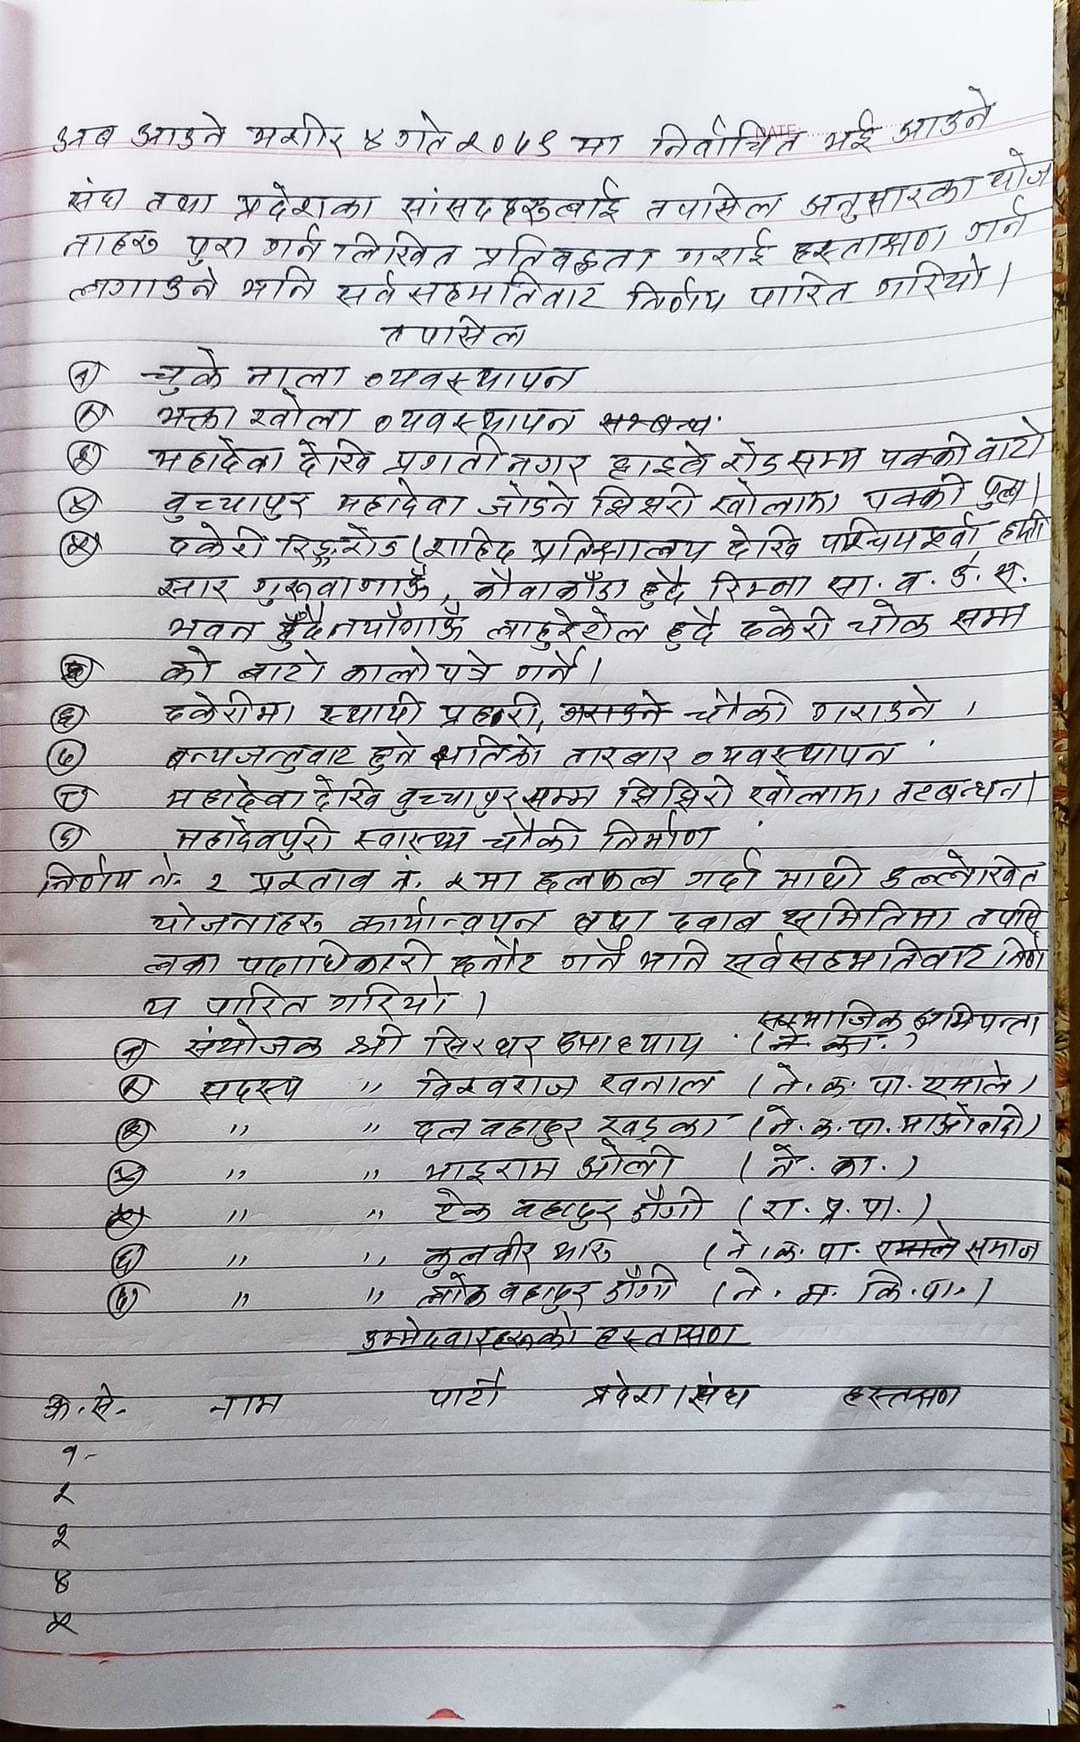 अब आउने मंसीर ४ गते २०७९ मा निर्वाचित भई आउने
संघ तथा प्रदेशका सांसदहरुलाई तपासिल अनुसारका योज
नाहरु पुरा गर्न लिखित प्रतिवद्धता गराई हस्ताक्षण गर्न
लगाउने भनि सर्वसहमतिवाट निर्णय पारित गरियो।
तपासिल
१ चुके नाला व्यवस्थापन
२ भक्ता खोला व्यवस्थापन सम्बन्ध
३ महादेवा देखि प्रगतीनगर हाइवे रोड सम्म पक्की वाटो
४ वुच्चापुर महादेवा जोडने झिझरी खोलामा पक्की पुल।
५ ढकेरी रिङ्गरोड (शहिद प्रतिक्षालय देखि पश्चिम
गुरुवागाऊँ, कौवाकाँडा हुदै रिम्ना सा. व. उ. स.
भवन हुँदै नयाँगाऊँ लाहुरेटोल हुदै ढकेरी चोक सम्म
को बाटो कालोपत्रे गर्ने।
६ ढकेरीमा स्थायी प्रहरी, चौकी गराउने।
७ बन्यजन्तुवाट हुने क्षतिको तारबार व्यवस्थापन
८ महादेवा देखि वुच्चापुर सम्म झिझिरी खोलामा तटबन्धन।
९ महादेवपुरी स्वास्थ्य चौकी निर्माण
निर्णय नं. २ प्रस्ताव नं. २ मा छलफल गर्दा माथी उल्लेखित
योजनाहरु कार्यान्वयन तथा दवाब समितिमा तपसि
लका पदाधिकारी छनौट गर्ने भनि सर्वसहमतिवाट निर्ण
य पारित गरियो।
सामाजिक अभियन्ता
१ संयोजक श्री सिरधर उपाध्याय (ने. का.)
२ सदस्य " विश्वराज खनाल (ने. क. पा. एमाले)
३ " " दल वहादुर खड्का (ने. क. पा. माओवादी)
४ " " भाइराम ओली (ने. का.)
५ " " टेक वहादुर डाँगी (रा. प्र. पा.)
६ " " कुलवीर थारु (ने. क. पा. एमाले समाज
७ " " लोक वहादुर डाँगी (ने. म. कि. पा.)
उम्मेदवारहरुको हस्ताक्षण
क्र. सं. नाम पार्टी प्रदेश/संघ हस्ताक्षण
१-
२
३
४
५